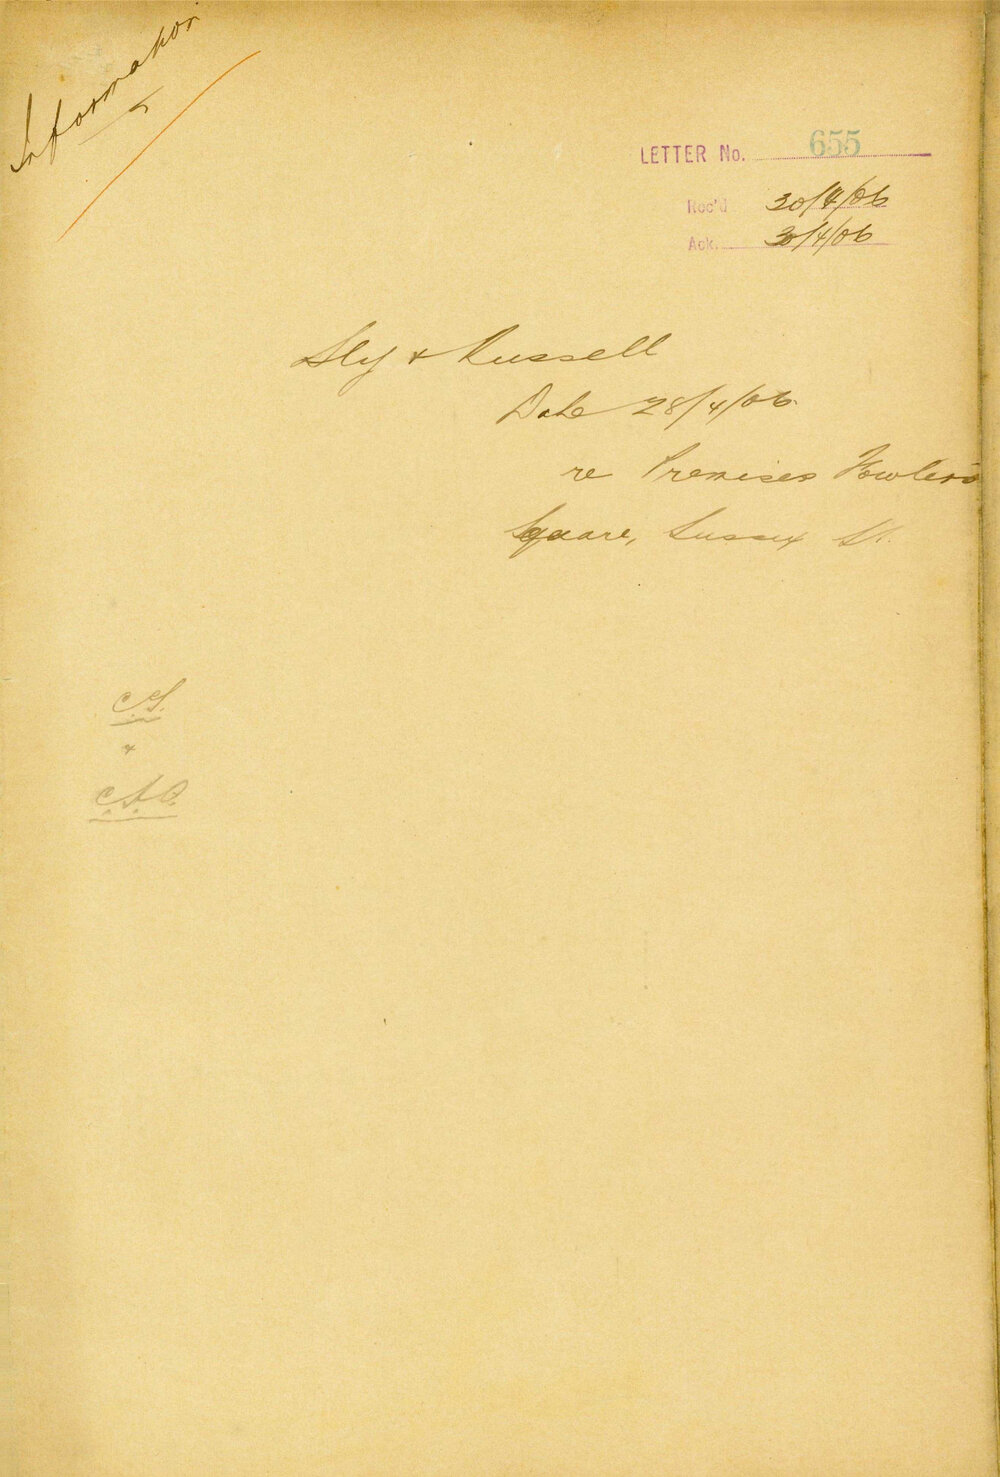 Information
LETTER No. 655
Rec'd 30/4/06
Ack. 30/4/06
Sly & Russell
Date 28/4/06
re Premises Fowler's
Square, Sussex St.
C.S.
&
C.A.O.